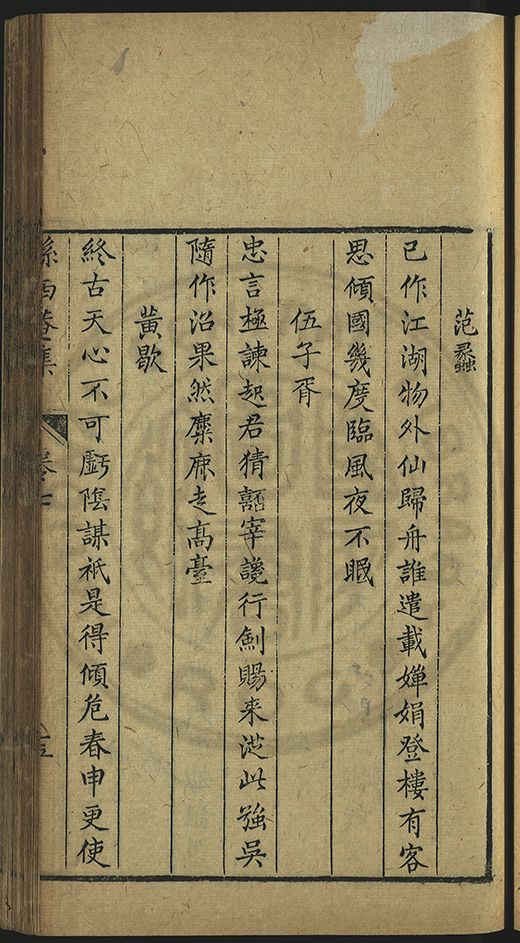 范蠡
已作江湖物外仙歸舟誰遣載嬋娟登樓有客
思傾國幾度臨風夜不眠
伍子胥
忠言極諫起君猜嚭宰讒行劍賜來從此強吳
隨作沼果然麋鹿走高臺
黃歇
終古天心不可虧陰謀祇是得傾危春申更使
孫西菴集
卷七